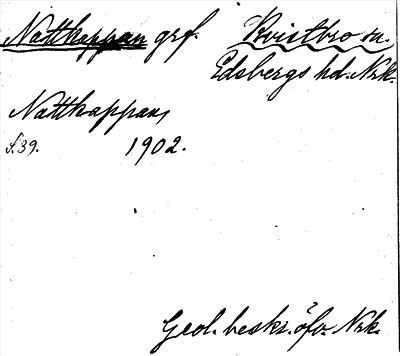 Nattkappan grf. Kvistbro sn.
Edsbergs hd. Nrk.
Nattkappan,
s. 39. 1902.
Geol. beskr. öfv. Nrk.